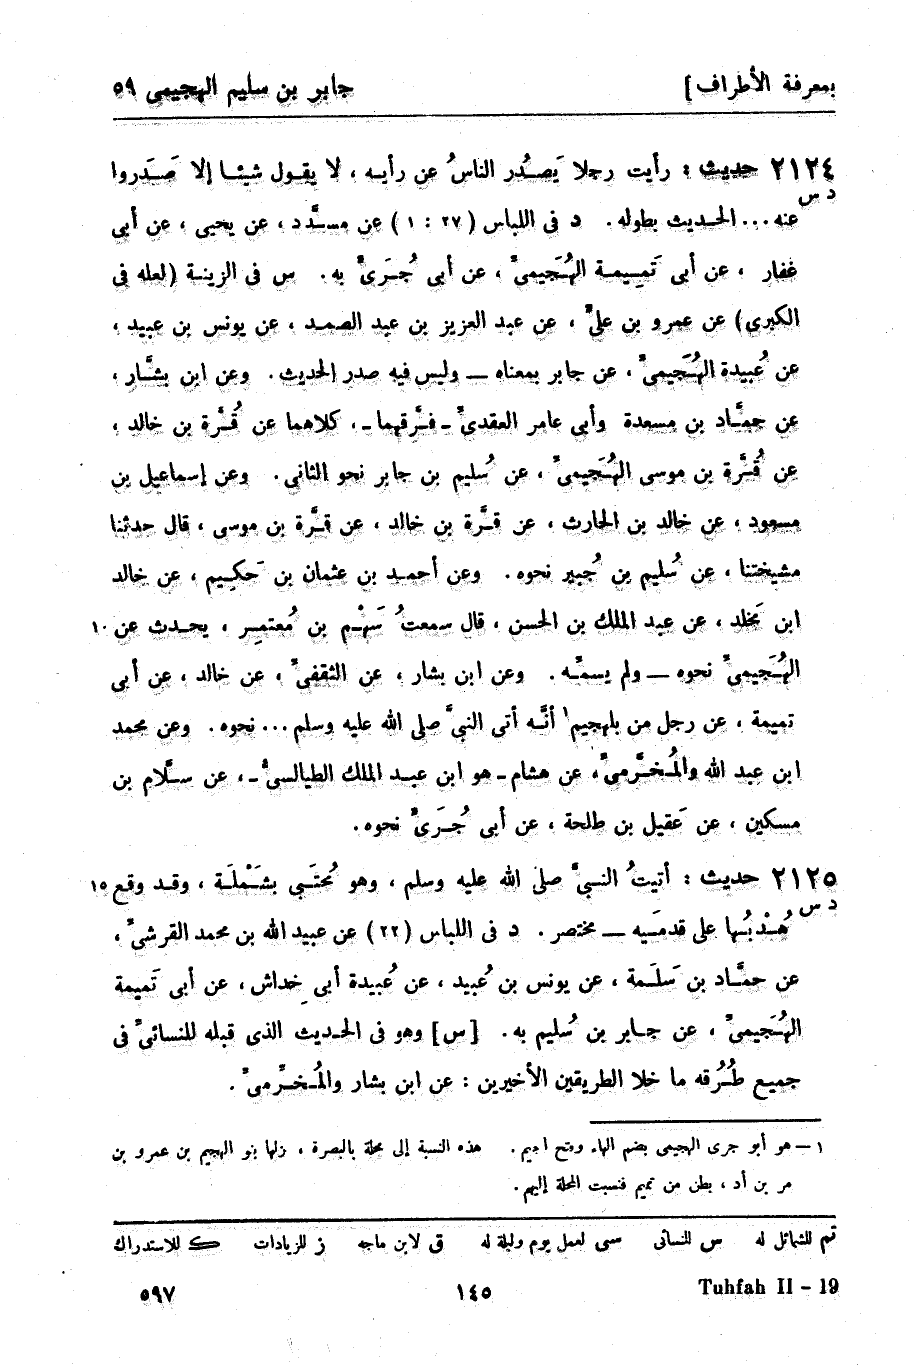 بمعرفة الأطراف ] جابر بن سليم الهجيمى ٥٩
٢١٢٤ حديث : رأيت رجلا يَصدُر الناسُ عن رأيه ، لا يقول شيئا إلا صَدَروا
د س
عنه ... الحديث بطوله . د فى اللباس ( ٢٧ : ١ ) عن مسدَّد ، عن يحيى ، عن أبى
غفار ، عن أبى تَمِيمة الهُجَيمىّ ، عن أبى جُرَىّ به . س فى الزينة (لعله فى
الكبرى) عن عمرو بن علىّ ، عن عبد العزيز بن عبد الصمد ، عن يونس بن عبيد ،
عن عُبيدة الهُجَيمىّ ، عن جابر بمعناه — وليس فيه صدر الحديث . وعن ابن بشَّار ،
عن حمَّاد بن مسعدة وأبى عامر العقدىّ - فرَّقهما - ، كلاهما عن قُرَّة بن خالد ،
عن قُرَّة بن موسى الهُجَيمىّ ، عن سُليم بن جابر نحو الثانى . وعن إسماعيل بن
مسعود ، عن خالد بن الحارث ، عن قرَّة بن خالد ، عن قرَّة بن موسى ، قال حدثنا
مشيختنا ، عن سُليم بن جُبير نحوه . وعن أحمد بن عثمان بن حَكِيم ، عن خالد
ابن مَخلد ، عن عبد الملك بن الحسن ، قال سمعتُ سَهْم بن مُعتمِر ، يحدث عن ١٠
الهُجَيمىّ نحوه — ولم يسمِّه . وعن ابن بشار ، عن الثقفىّ ، عن خالد ، عن أبى
تميمة ، عن رجل من بلهجيم١ أنَّه أتى النبىَّ صلى الله عليه وسلم ... نحوه . وعن محمد
ابن عبد الله والمُخرَّمىّ ، عن هشام - هو ابن عبد الملك الطيالسىُّ - ، عن سلَّام بن
مسكين ، عن عَقيل بن طلحة ، عن أبى جُرَىّ نحوه .
٢١٢٥ حديث : أتيتُ النبىَّ صلى الله عليه وسلم ، وهو مُحتَبى بشَمْلَة ، وقد وقع ١٥
د س
هُدْبُها على قدمَيه — مختصر . د فى اللباس (٢٢) عن عبيد الله بن محمد القرشىّ ،
عن حمَّاد بن سَلَمة ، عن يونس بن عُبيد ، عن عُبيدة أبى خِداش ، عن أبى تَميمة
الهُجَيمىّ ، عن جابر بن سُليم به . [س] وهو فى الحديث الذى قبله للنسائىّ فى
جميع طُرُقه ما خلا الطريقين الأخيرين : عن ابن بشار والمُخرَّمىّ .
١ — هو أبو جرى الهجيمى بضم الهاء وفتح الجيم . هذه النسبة إلى محلة بالبصرة ، نزلها بنو الهجيم بن عمرو بن
مر بن أد ، بطن من تميم فنسبت المحلة إليهم .
تم للشمائل له س للنسائى سى لعمل يوم وليلة له ق لابن ماجه ز للزيادات ك للاستدراك
Tuhfah II - 19 ١٤٥ ٥٩٧